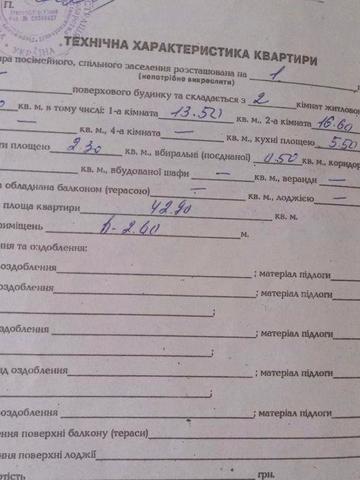 П.
УКРАЇНА
ТЕХНІЧНА ХАРАКТЕРИСТИКА КВАРТИРИ
ра посімейного, спільного заселення розташована на 1
(непотрібне викреслити)
поверхового будинку та складається з 2 кімнат житлово
кв. м, в тому числі: 1-а кімната 13.50 кв. м., 2-а кімната 16.60
— кв. м., 4-а кімната — кв. м., кухні площею 5.50
ти площею 2.30 кв. м., вбиральні (поєднаної) 0.50 кв. м., коридор
кв. м., вбудованої шафи — кв. м., веранди —
а обладнана балконом (терасою) — кв. м., лоджією —
площа квартири 42.20 кв. м.
риміщень h-2.60 м.
ння та оздоблення:
оздоблення ; матеріал підлоги
оздоблення ; матеріал підлоги
здоблення ; матеріал підлоги
д оздоблення ; матеріал підлоги
оздоблення ; матеріал підлоги
ення поверхні балкону (тераси)
ення поверхні лоджії
ртість грн.